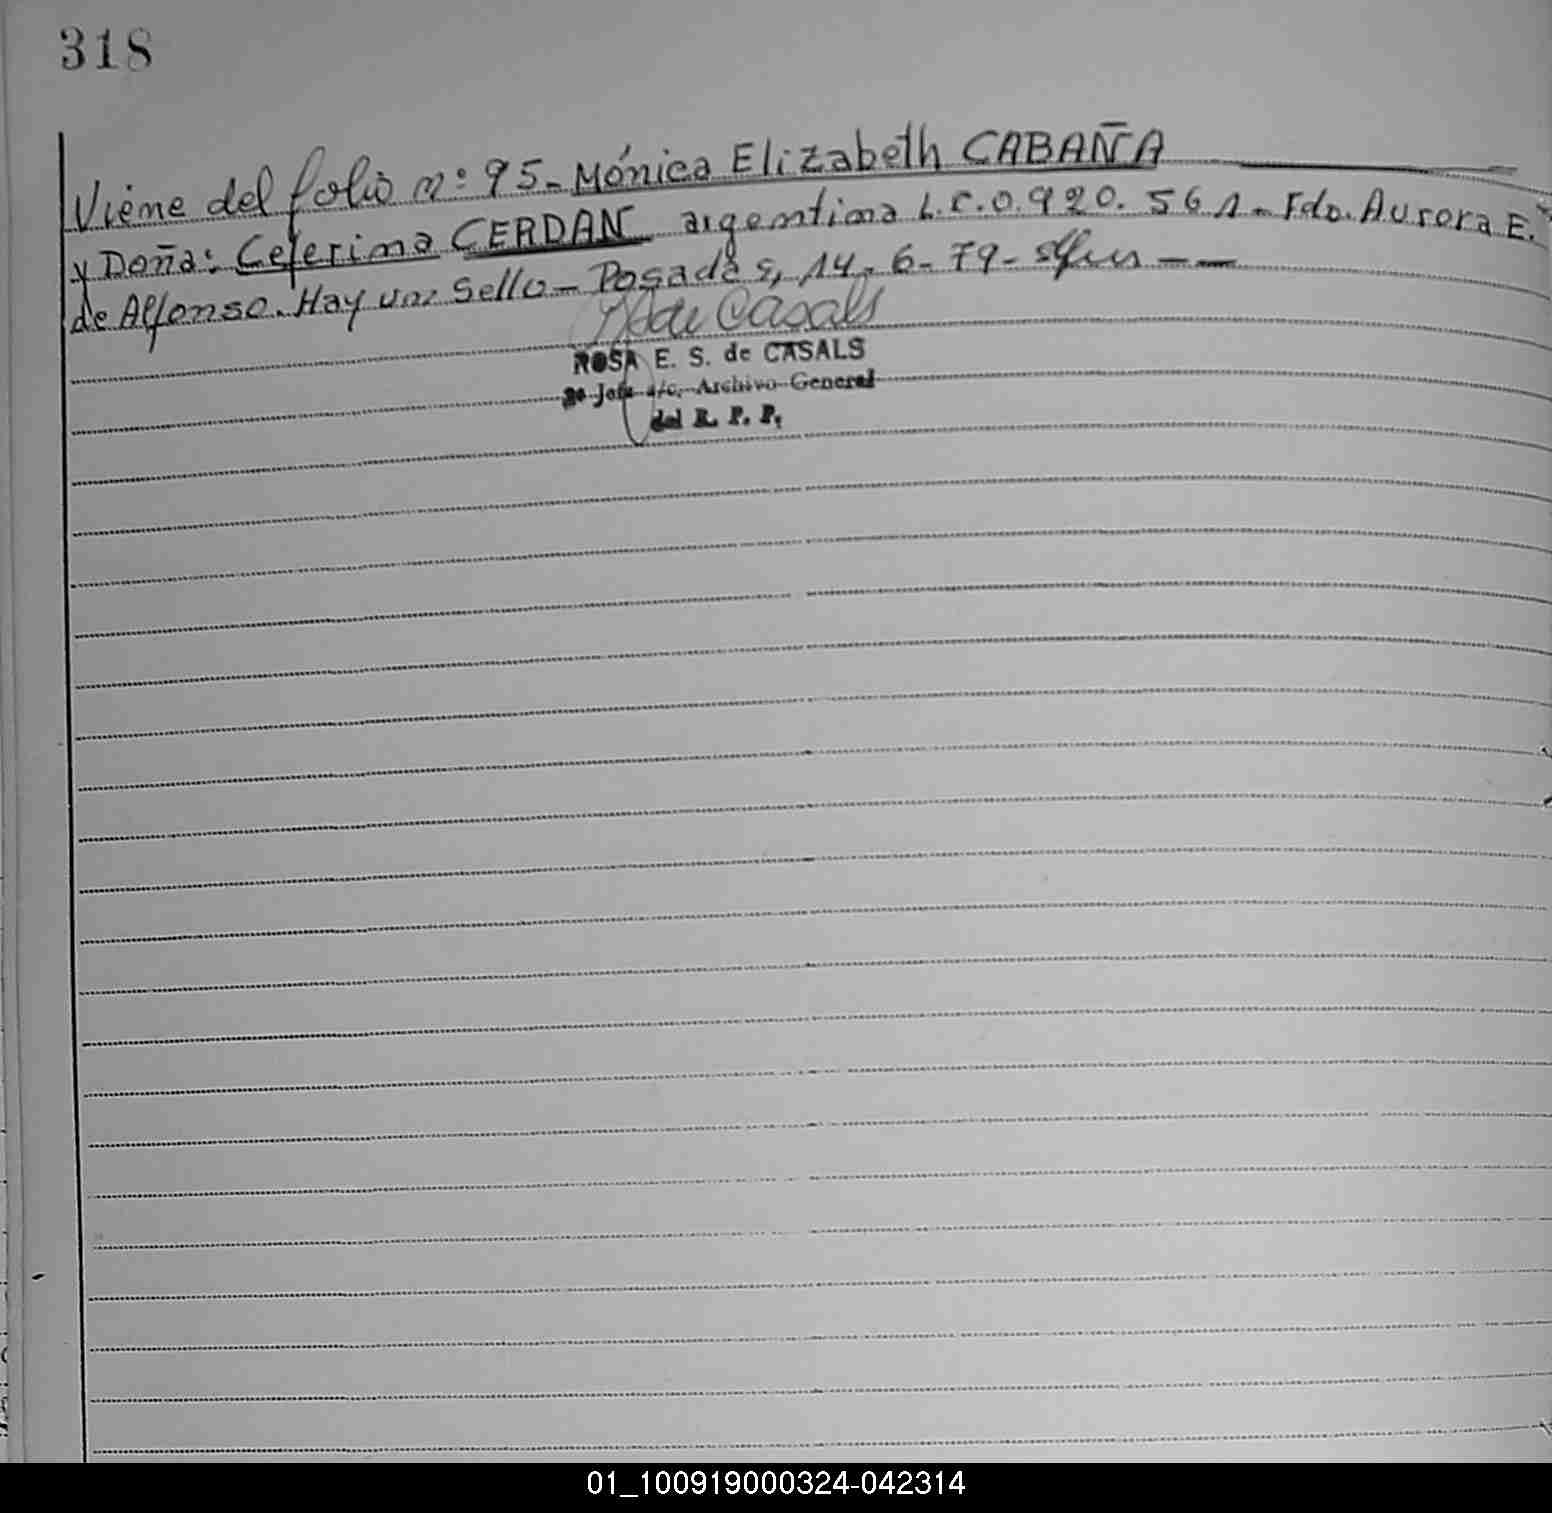 318
Viene del folio nº 95_ Mónica Elizabeth CABAÑA
y Doña: Ceferina CERDAN argentina L.C.0.920.561_ Fdo. Aurora E. S.
de Alfonso. Hay un Sello_ Posadas, 14-6-79-
de Casals
ROSA E. S. de CASALS
2º Jefe a/c. Archivo General
del R. P. P.
01_100919000324-042314